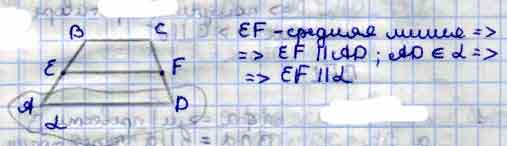 B C
E F
A D
α
EF - средняя линия =>
=> EF || AD ; AD ∈ α =>
=> EF || α